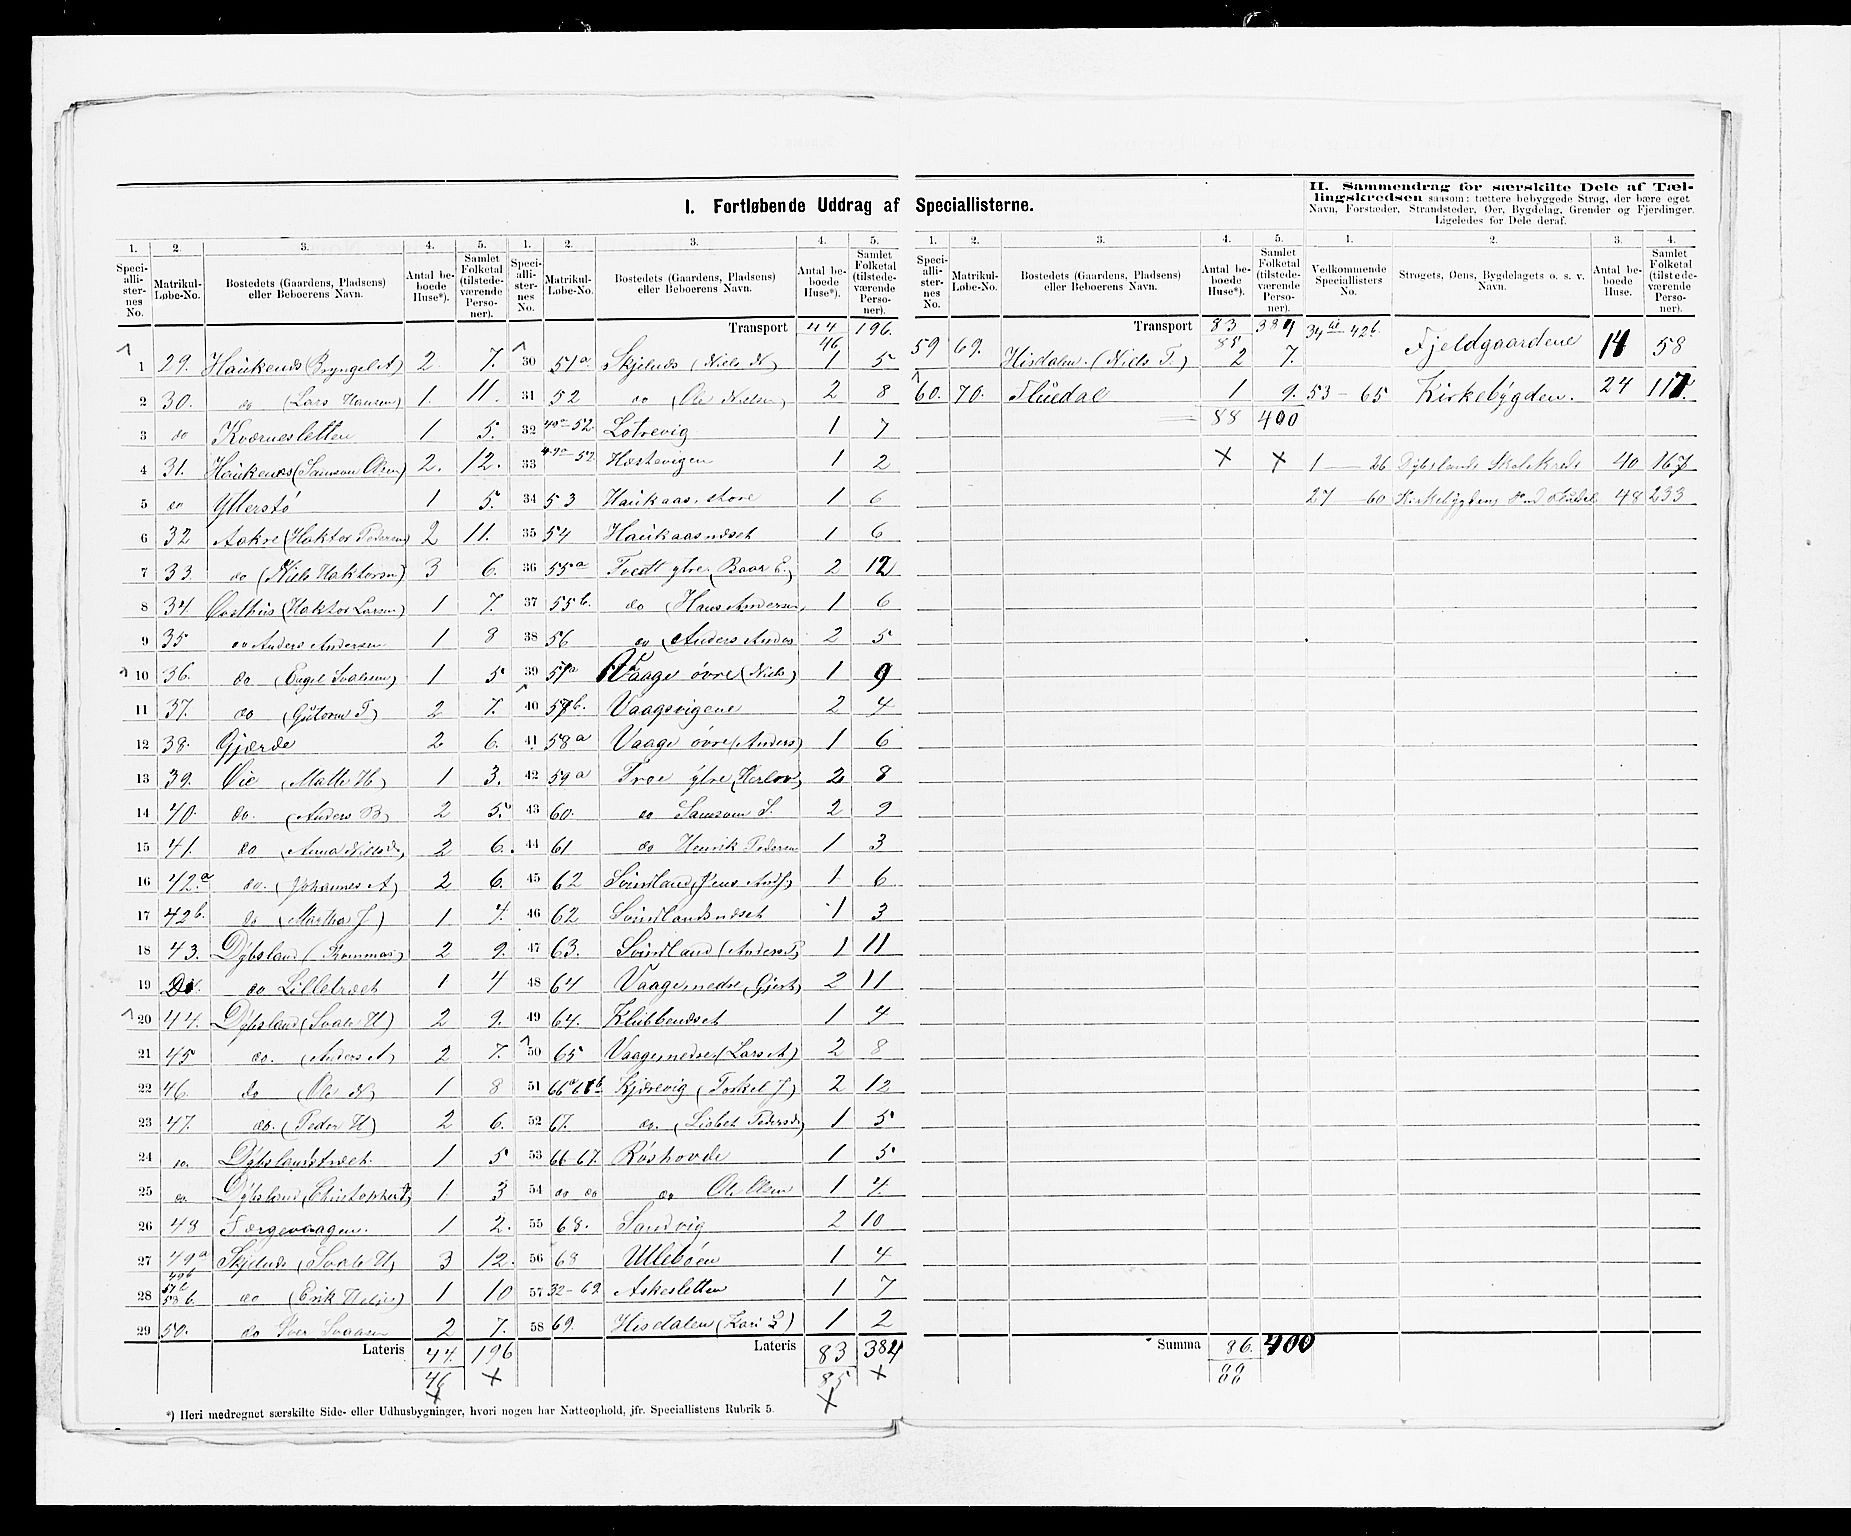 I. Fortløbende Uddrag af Speciallisterne.
1. 2. 3. 4. 5.
Speciallisternes No. Matrikul-Løbe-No. Bostedets (Gaardens, Pladsens) eller Beboerens Navn. Antal beboede Huse*). Samlet Folketal (tilstedeværende Personer).
1 29. Haukenæs (Bryngel A) 2. 7.
2 30. do (Lars Hansen) 1. 11.
3 do Kværnesletten 1 5.
4 31. Haukenæs (Samson Olsen) 2. 12.
5 do Ytterstø 1 5.
6 32 Aakre (Haktor Pedersen) 2 11.
7 33. do (Niels Haktorsen) 3 6.
8 34 Øvsthus (Haktor Larsen) 1 7.
9 35 do Anders Andersen 1 8
10 36. do (Engel) 1 5
11 37. do (Gutorm T) 2 7.
12 38. Gjærde 2 6.
13 39. Øie (Matte H) 1 3.
14 40. do. (Anders B) 2 5.
15 41. do (Anna Nilsd) 2 6.
16 42.a do. (Johannes A) 2 6.
17 42b. do (Martha J) 1 4.
18 43. Dybsland (Thommas) 2 9.
19 do Lilletræet 1 4
20 44. Dybsland (Svale H) 2 9.
21 45 do. (Anders A) 2 7.
22 46. do (Ole N) 1 8
23 47. do. (Peder H) 2 6.
24 do. Dybslandstræet. 1 5
25 do Dybsland (Christopher) 1. 3
26 48 Færgevaagen. 1 2.
27 49a Skjelnæs (Svale H) 3 12.
28 49b 51b 58b. do (Erik) 1 10
29 50. do Iver 2 7.
Lateris 44. 196
46 X
X
1. 2. 3. 4. 5.
Speciallisternes No. Matrikul-Løbe-No. Bostedets (Gaardens, Pladsens) eller Beboerens Navn. Antal beboede Huse*). Samlet Folketal (tilstedeværende Personer).
Transport 44 196.
46
30 51a. Skjelnæs (Niels N) 1 5
31 52 do (Ole Nielsen) 2 8
32 49a-52. Lotrevig 1 7
33 49a-52 Hestevigen 1 2
34 53 Haukaas, store 1 6
35 54 Haukaasnæset 1 6
36 55a Tvedt ytre (Baar E.) 2 12
37 55b. do (Hans Andersen) 1 6
38 56 do (Anders Anders) 2 5
39 57a Vaage øvre (Niels) 1 9
40 57b. Vaagsvigene 2 4
41 58a Vaage øvre (Anders) 1 6
42 59a Træ ytre (Herlov) 2 8
43 60. do Samson S. 2 9
44 61 do Henrik Pedersen 1 3
45 62 Svindland (Jens And) 1 6
46 62 Svindlandsnæset 1 3
47 63. Svindland (Anders P) 1 11
48 64 Vaage nedre (Gjert) 2 11
49 64. Klubbenæset 1 4
50 65 Vaage nedre (Lars A) 2 8
51 66a 66b Kjærevig (Torkel J) 2 12
52 67. do. (Lisbet Pedersd) 1 5
53 66-67. Røshovde 1 5
54 do do do Ole Olsen 1 4.
55 68. Sandvig 2 10
56 68 Ullebøen 1 4
57 32-62 Askesletten 1 7
58 69. Hisdalen (Kari L) 1 2
Lateris 83 384
85 X
X
*) Heri medregnet særskilte Side- eller Udhusbygninger, hvori nogen har Natteophold, jfr. Speciallistens Rubrik 5.
1. 2. 3. 4. 5.
Speciallisternes No. Matrikul-Løbe-No. Bostedets (Gaardens, Pladsens) eller Beboerens Navn. Antal beboede Huse*). Samlet Folketal (tilstedeværende Personer).
Transport 83 384
85
59 69. Hisdalen. (Niels T.) 2 7.
60. 70. Fluedal 1 9.
88 400
X X
Summa 86. 400
88
II. Sammendrag for særskilte Dele af Tællingskredsen saasom: tættere bebyggede Strøg, der bære eget Navn, Forstæder, Strandsteder, Øer, Bygdelag, Grender og Fjerdinger. Ligeledes for Dele deraf.
1. 2. 3. 4.
Vedkommende Speciallisters No. Strøgets, Øens, Bygdelagets o. s. v. Navn. Antal beboede Huse. Samlet Folketal (tilstedeværende Personer).
34 til 42b. Fjeldgaardene 14 58
53 - 65 Kirkebygden. 24 117.
1 - 26 Dybslands Skolekreds 40 167
27 - 60 Kirkebygdens 48 233